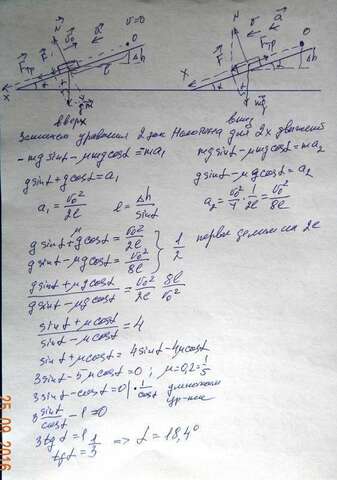 v=0
вверх
вниз
Запишем уравнения 2 зак Ньютона для 2х движений
-mg sinα - μmg cosα = ma₁
mg sinα - μmg cosα = ma₂
g sinα + g cosα = a₁
g sinα - μg cosα = a₂
a₁ = v₀²/2l
l = Δh/sinα
a₂ = v₀²/4 · 1/2l = v₀²/8l
g sinα + μg cosα = v₀²/2l
g sinα - μg cosα = v₀²/8l
} 1/2 первое делим на 2е
(g sinα + μg cosα)/(g sinα - μg cosα) = v₀²/2l · 8l/v₀²
(sinα + μcosα)/(sinα - μcosα) = 4
sinα + μcosα = 4sinα - 4μcosα
3sinα - 5μcosα = 0 ; μ = 0,2 = 1/5
3sinα - cosα = 0 | · 1/cosα умножаем ур-ние
3 sinα/cosα - 1 = 0
3tgα = 1
tgα = 1/3 => α = 18,4°
25 09 2016